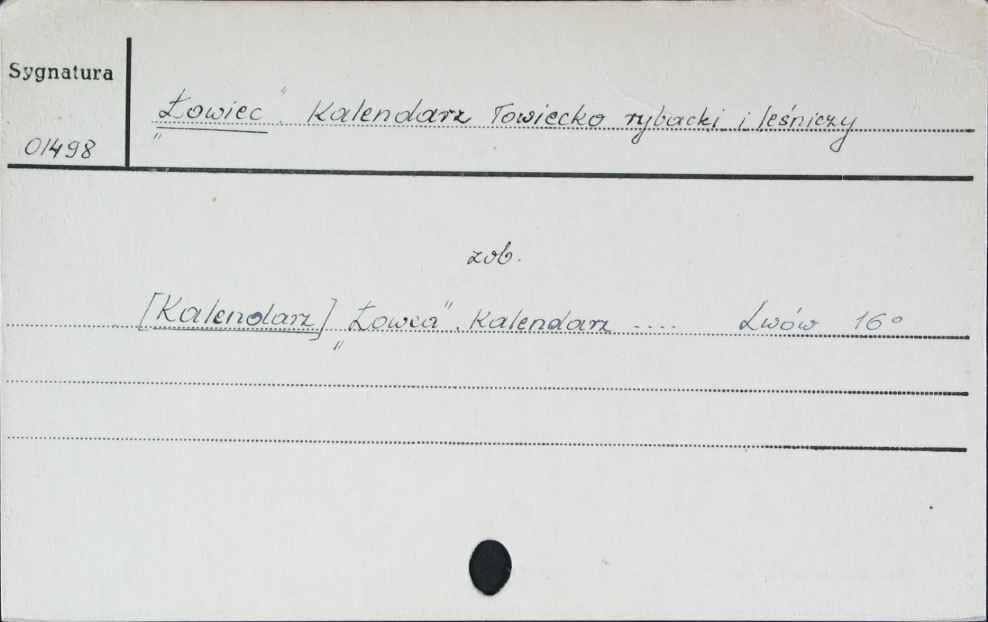 Sygnatura
01498
„Łowiec". Kalendarz łowiecko rybacki i leśniczy
zob.
[Kalendarz] „Łowca". Kalendarz .... Lwów 16°